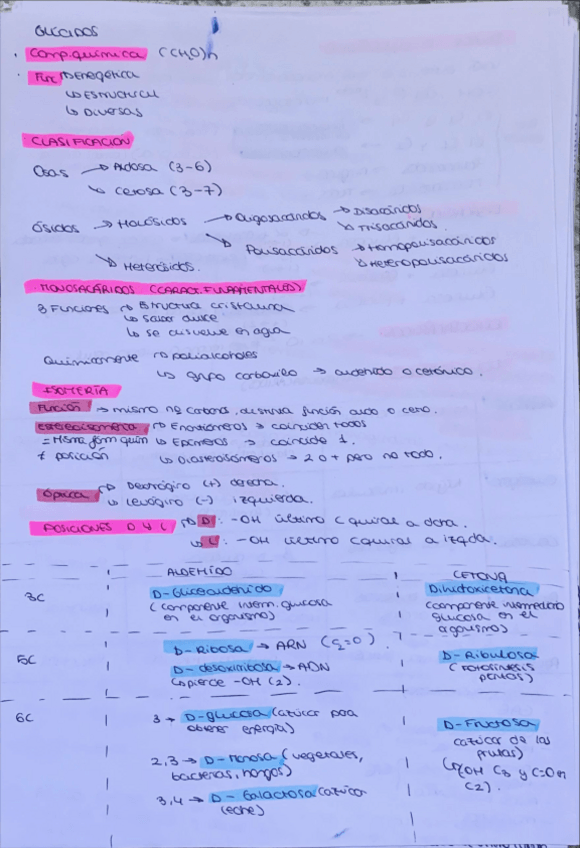 GLÚCIDOS
· Comp. química (CH2O)n
· Func → Energética
↳ Estructural
↳ Diversas
CLASIFICACIÓN
Osas → Aldosa (3-6)
↳ Cetosa (3-7)
Ósidos → Holósidos → Oligosacáridos → Disacáridos
↳ Trisacáridos.
↳ Polisacáridos → Homopolisacáridos
↳ Heteropolisacáridos
↳ Heterósidos.
MONOSACÁRIDOS (CARACT. FUNDAMENTALES)
3 Funciones → Estructura cristalina
↳ Sabor dulce
↳ se disuelve en agua
Químicamente → polialcoholes
↳ grupo carbonilo → aldehído o cetónico.
ISOMERÍA
Función → mismo nº carbono, distinta función aldo o ceto.
Estereoisomería → Enantiómeros → coinciden todos
= Misma fórm quím ↳ Epímeros → coincide 1.
≠ posición ↳ Diastereisómeros → 2 o + pero no todo.
Óptica → Dextrógiro (+) derecha.
↳ Levógiro (-) izquierda.
POSICIONES D Y L → D: -OH último C quiral a dcha.
↳ L: -OH último C quiral a izqda.
ALDEHÍDO CETONA
3C D-Gliceraldehído Dihidroxicetona
(componente interm. glucosa (componente intermedario
en el organismo) glucosa en el
organismo)
5C D-Ribosa → ARN (C2=O). D-Ribulosa
D-desoxirribosa → ADN (Fotosíntesis
(pierde -OH (2). plantas)
6C 3 → D-glucosa (azúcar para D-Fructosa
obtener energía) (azúcar de las
frutas)
2,3 → D-Manosa (vegetales, (OH C3 y C=O en
bacterias, hongos) C2).
3,4 → D-Galactosa (azúcar
leche)